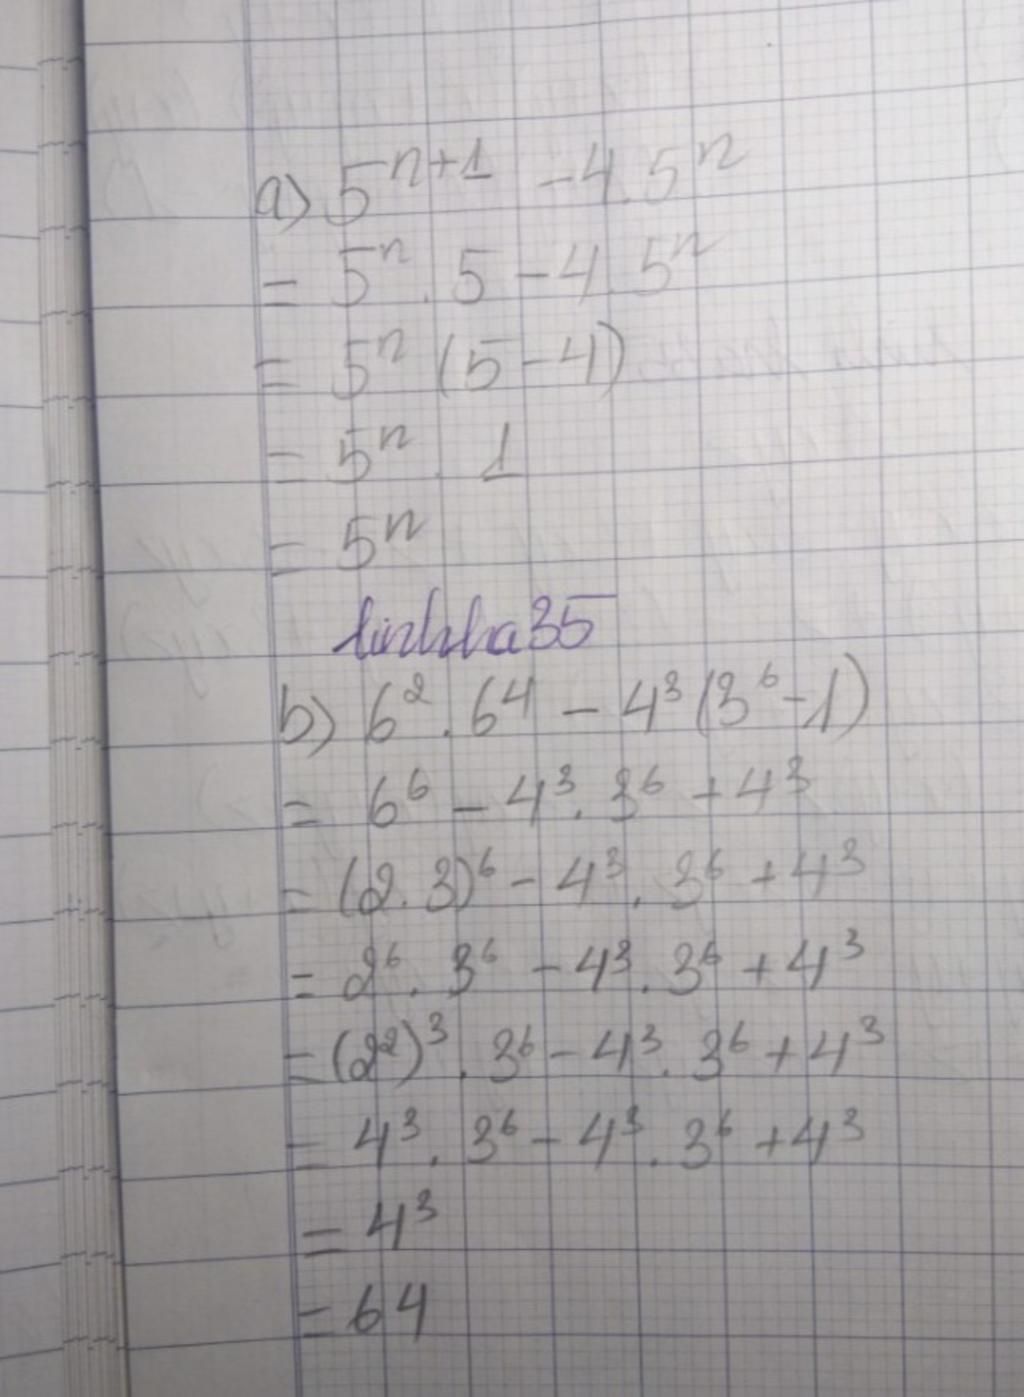 a) 5ⁿ⁺¹ - 4.5ⁿ
= 5ⁿ . 5 - 4.5ⁿ
= 5ⁿ (5 - 4)
= 5ⁿ . 1
= 5ⁿ
linhha35
b) 6² . 6⁴ - 4³ (3⁶ - 1)
= 6⁶ - 4³ . 3⁶ + 4³
= (2.3)⁶ - 4³ . 3⁶ + 4³
= 2⁶ . 3⁶ - 4³ . 3⁶ + 4³
= (2²)³ . 3⁶ - 4³ . 3⁶ + 4³
= 4³ . 3⁶ - 4³ . 3⁶ + 4³
= 4³
= 64